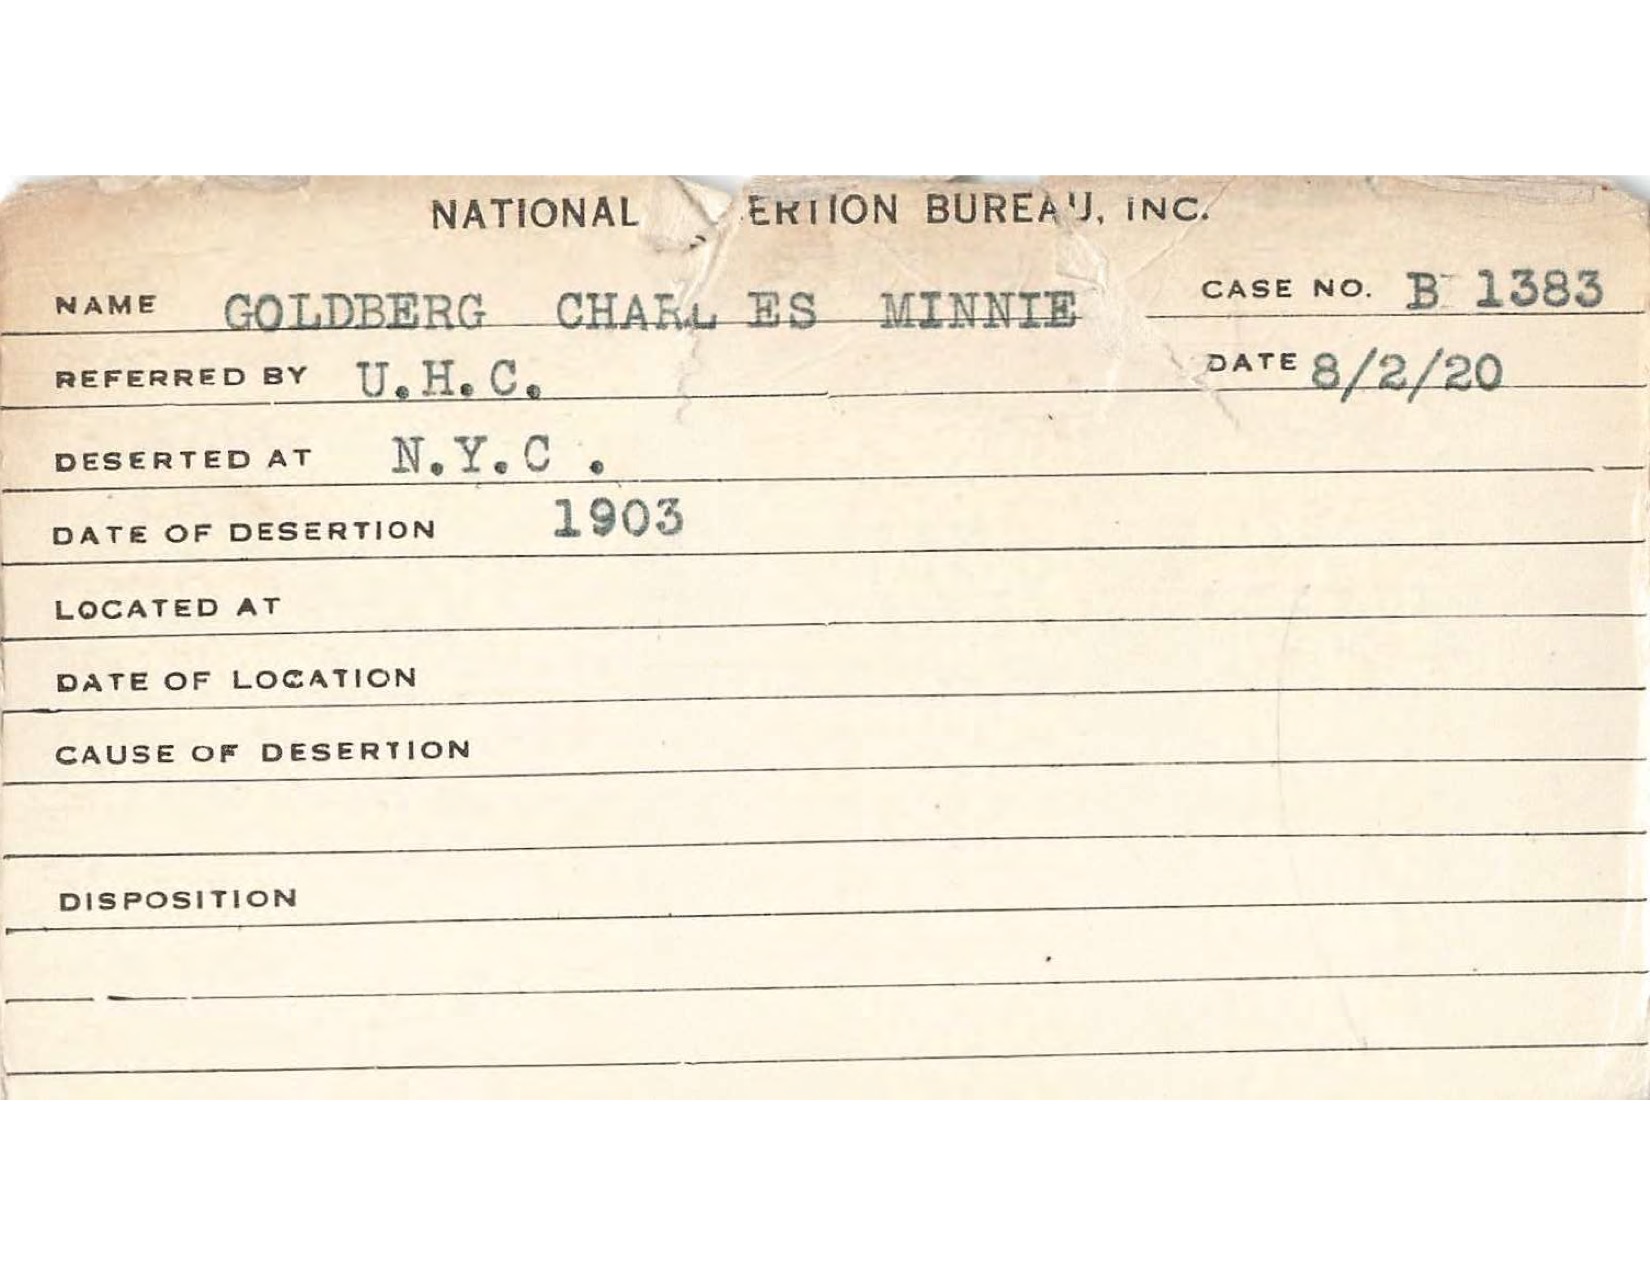 NATIONAL ERTION BUREAU, INC.
NAME GOLDBERG CHARLES MINNIE CASE NO. B 1383
REFERRED BY U.H.C. DATE 8/2/20
DESERTED AT N.Y.C.
DATE OF DESERTION 1903
LOCATED AT
DATE OF LOCATION
CAUSE OF DESERTION
DISPOSITION